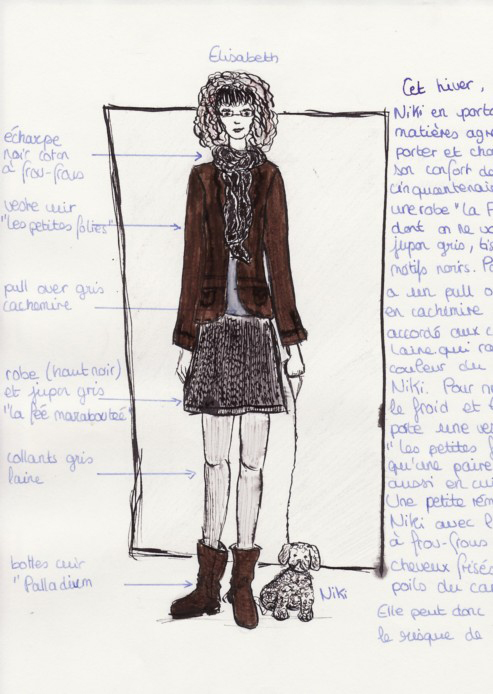 Elisabeth
écharpe
noir coton
à frou-frous
veste cuir
"les petites folies"
pull over gris
cachemire
robe (haut noir)
et jupon gris
"la fée maraboutée"
collants gris
laine
bottes cuir
"Palladium
Niki
Cet hiver,
Niki en porte
matières agr
porter et cha
son confort de
cinquantenair
une robe "la F
dont on ne vo
jupon gris, tis
motifs noirs. Pa
a un pull o
en cachemire
accordé aux c
laine qui ra
couleur du
Niki. Pour
le froid et
porte une ves
"les petites f
qu'une paire
aussi en cui
Une petite rém
Niki avec l
à frou-frous
cheveux frisés
poils du ca
Elle peut donc
le risque de